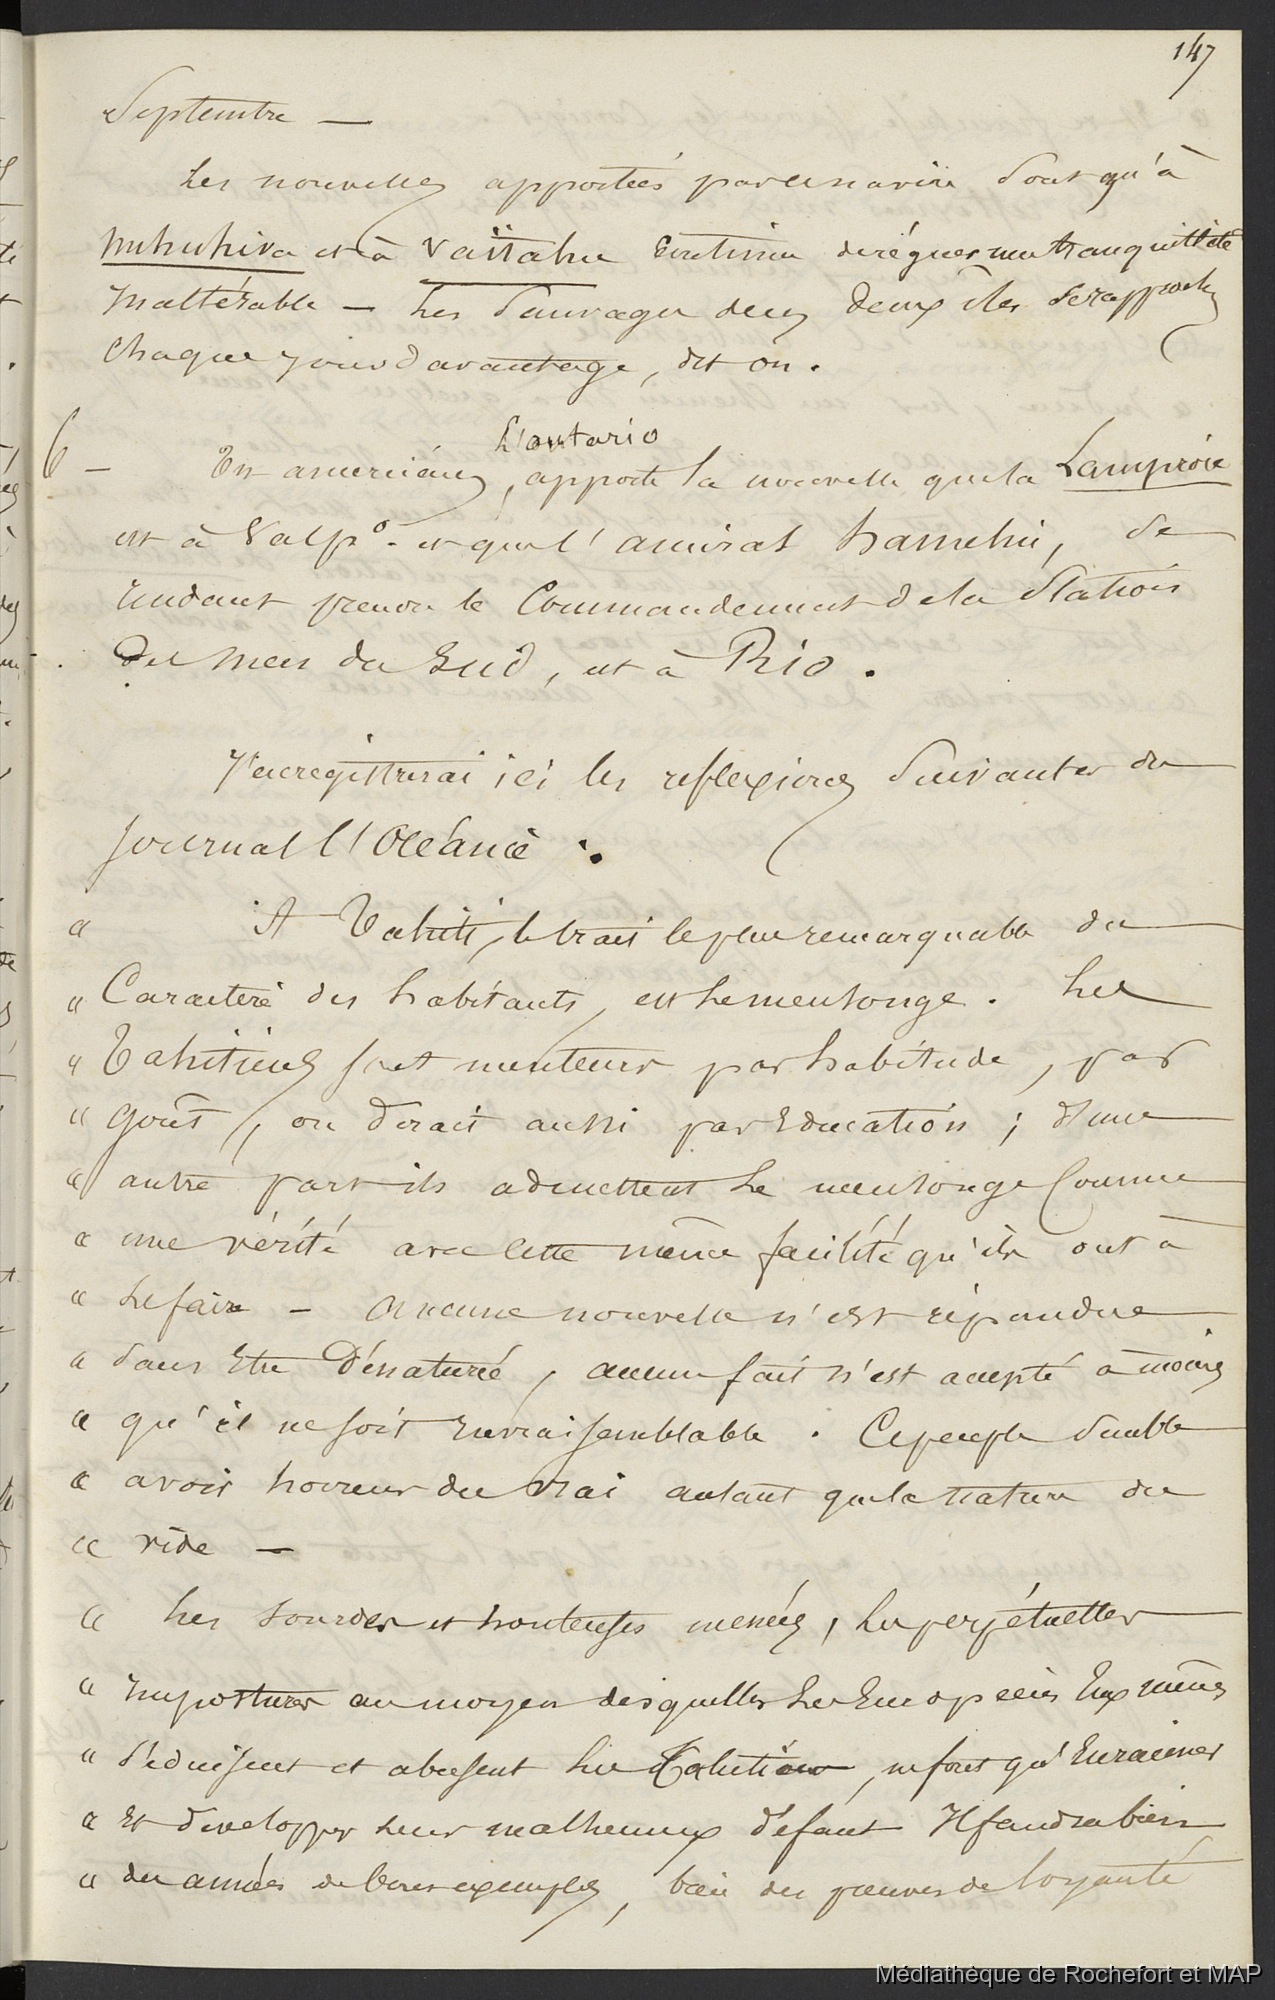 147
Septembre —
Les nouvelles apportées par ce navire sont qu'à
Nukuhiva et à Vaïtahu continue de régner une tranquillité
inaltérable — Les sauvages de ces deux îles se rapproche
chaque jour davantage, dit on.
L'ontario
6 — Un américain, apporte la nouvelle que la Lamproie
est à Valp°. et que l'amiral hamelin, se
rendant prendre le Commandement de la Station
des mers du Sud, est à Rio.
J'enregistrerai ici les reflexions suivantes du
journal l'Océanie :
" A Tahiti, le trait le plus remarquable du
" Caractère des habitants, est le mensonge. Les
" Tahitiens sont menteurs par habitude, par
" goût, on dirait aussi par Education ; d'une
" autre part ils admettent le mensonge Comme
" une vérité avec cette même facilité qu'ils ont à
" le faire — Aucune nouvelle n'est répandue
" sans être dénaturée, aucun fait n'est accepté à moins
" qu'il ne soit invraisemblable. Ce peuple semble
" avoir horreur du vrai autant que la nature du
" vide —
" Les sourdes et honteuses menées, les perpétuelles
" impostures au moyen desquelles les Européens Eux mêmes
" séduisent et abusent les Tahitiens, ne font qu'Enraciner
" Et développer leur malheureux défaut Il faudra bien
" des années de bons exemples, bien des preuves de loyauté
Médiathèque de Rochefort et MAP